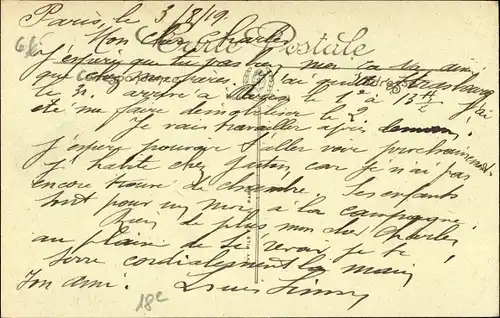 Paris, le 3/8/19
Mon cher Charles
Carte Postale
J'espère que tu vas bien, moi ça va ainsi
que chez mes J'ai quitté Strasbourg
le 31. arrivé à Paris le 1er à 13h J'ai
été me faire démobiliser le 2
Je vais travailler après demain,
J'espère pouvoir t'aller voir prochainement.
J'habite chez car je n'ai pas
encore trouvé de chambre. Ses enfants
sont pour un mois à la campagne
Rien de plus mon cher Charles
au plaisir de te revoir, je te
serre cordialement la main
Ton ami. Louis
18e